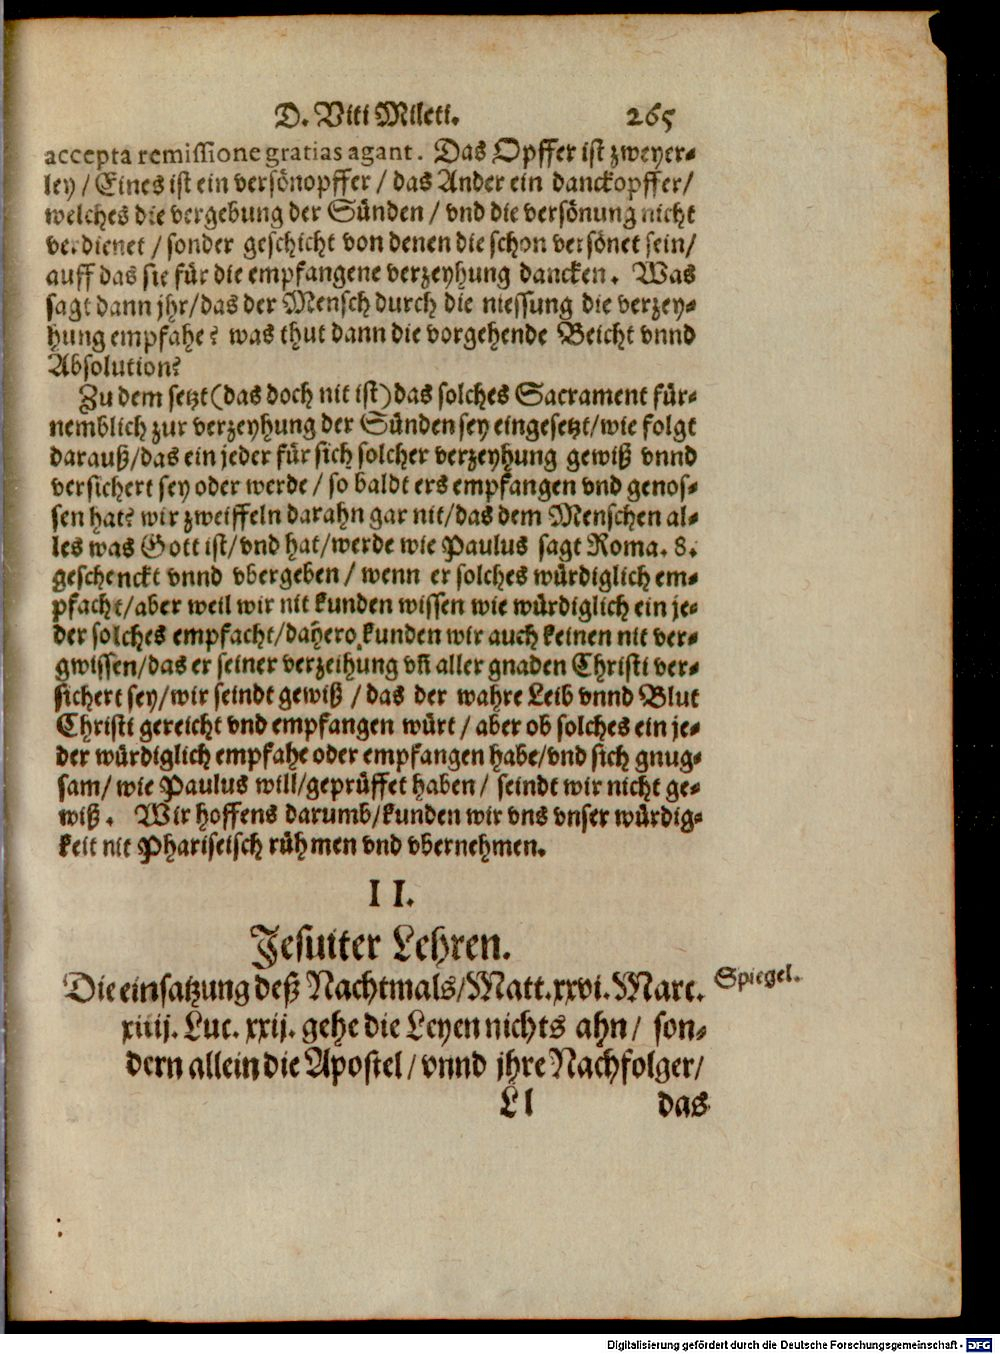 D. Viti Mileti. 265
accepta remissione gratias agant. Das Opffer ist zweyer-
ley / Eines ist ein versönopffer / das Ander ein danckopffer/
welches die vergebung der Sünden / vnd die versönung nicht
verdienet / sonder geschicht von denen die schon versönet sein/
auff das sie für die empfangene verzeyhung dancken. Was
sagt dann jhr/das der Mensch durch die niessung die verzey-
hung empfahe? was thut dann die vorgehende Beicht vnnd
Absolution?
Zu dem setzt (das doch nit ist) das solches Sacrament für-
nemblich zur verzeyhung der Sünden sey eingesetzt/wie folgt
darauß/das ein jeder für sich solcher verzeyhung gewiß vnnd
versichert sey oder werde / so baldt ers empfangen vnd genos-
sen hat? wir zweiffeln darahn gar nit/das dem Menschen al-
les was Gott ist/vnd hat/werde wie Paulus sagt Roma. 8.
geschenckt vnnd vbergeben / wenn er solches würdiglich em-
pfacht/aber weil wir nit kunden wissen wie würdiglich ein je-
der solches empfacht/dahero kunden wir auch keinen nit ver-
gwissen/das er seiner verzeihung vñ aller gnaden Christi ver-
sichert sey/wir seindt gewiß / das der wahre Leib vnnd Blut
Christi gereicht vnd empfangen würt / aber ob solches ein je-
der würdiglich empfahe oder empfangen habe/vnd sich gnug-
sam/ wie Paulus will/geprüffet haben / seindt wir nicht ge-
wiß. Wir hoffens darumb/kunden wir vns vnser würdig-
keit nit Phariseisch rühmen vnd vbernehmen.
II.
Jesuiter Lehren.
Die einsatzung deß Nachtmals/Matt.xxvi.Marc. Spiegel.
xiiij. Luc. xxij. gehe die Leyen nichts ahn / son-
dern allein die Apostel / vnnd jhre Nachfolger/
Ll das
Digitalisierung gefördert durch die Deutsche Forschungsgemeinschaft - DFG